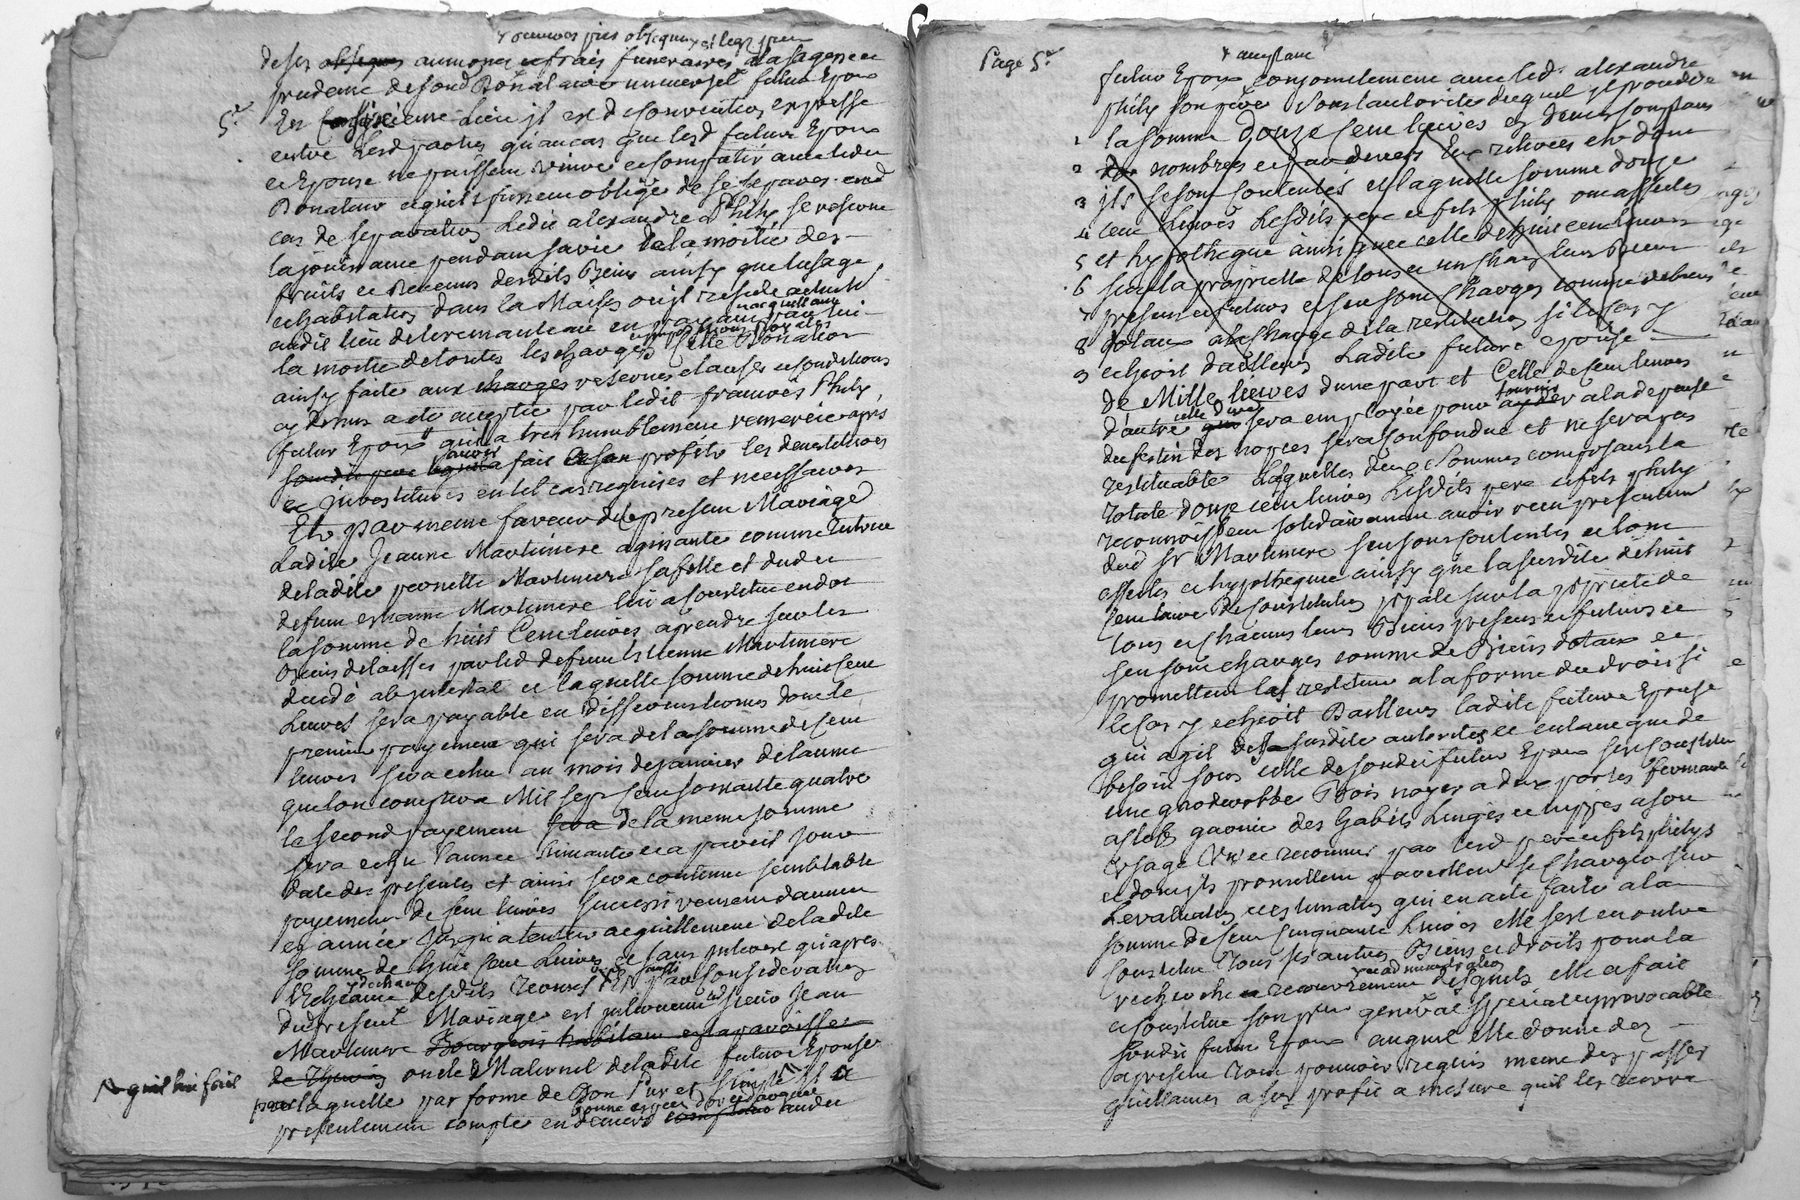 de ses obseques aumones et frais funeraires a la sagesse et
prudence de son d donataire universel futur Epoux
5e En cinquieme Lieu il est de convention expresse
entre lesd parties qu'au cas que lesd futur Epoux
et Epouse ne puissent vivre et compatir avec led
Donateur et quils fussent obligés de se separer aud
cas de separation Ledit alexandre Phily se reserve
la jouissance pendant sa vie de la moitié des
fruits et Revenus desdits Biens ainsy que lusage
et habitation dans la Maison ou il reside
la moitié de toutes les charges Cette Donation
ainsy faite aux charges reserves clauses et conditions
cy dessus a été acceptée par ledit francois Phily
futur Epoux qui la tres humblement remercié apres
avoir fait a son profit les devestitures
et investitures en tel cas requises et necessaires
Et par meme faveur du present Mariage
Ladite Jeanne Martiniere agissante comme tutrice
de ladite pernette Martiniere sa fille et dudit
defunt etienne Martiniere lui a constitué en dot
la somme de huit Cent livres a prendre sur les
Biens delaissés par led defunt Etienne Martiniere
decedé ab intestat et laquelle somme de huit cent
Livres sera payable en differents termes dont le
premier payement qui sera de la somme de cent
livres sera echu au mois de janvier de lannée
que lon comptera Mil sept cent soixante quatre
le second payement sera de la meme somme
sera echu l'année suivante et a pareil jour
date des presentes et ainsi sera continué semblable
payement de cent livres successivement dannée
en année jusqua lentier acquittement de ladite
somme de huit cent Livres et sans interest qu'apres
l'Echeance desdits termes Et par consideration
du present Mariage est intervenu sieur Jean
Martiniere Bourgeois habitant en la paroisse
de oncle Maternel de ladite future Epouse
laquelle par forme de Don Pur et simple il a
qu'il lui fait
presentement compté en deniers audit
Page 5e
futur Epoux conjointement avec led alexandre
phily son père sous lautorité duquel il procede
1 la somme douze cent livres en deniers comptans
2 nombrés et par devers Eux retirées et dont
3 ils se sont contentés et laquelle somme douze
4 cent Livres Lesdits pere et fils phily ont affectés
5 et hypothequé ainsi que celle de huit cent livres
6 sur la proprieté de tous et un chacun leurs Biens
7 presents et futurs et sen sont chargés comme de biens
8 dotaux a la charge de la restitution si le cas y
9 echeoit dailleurs Ladite future epouse
de Mille livres dune part et Celle de cent livres
d'autre sera employée pour fournir a la depense
du festin des nopces sera confondue et ne sera pas
restituable Lesquelles deux sommes composants la
totale douze cent livres Lesdits pere et fils phily
reconnoissent solidairement avoir recu presentement
dud sr Martiniere sen sont contentés et lont
affectés et hypothequé ainsy que la susdite de huit
Cent livres de constitution sur la proprieté de
tous et chacuns leurs Biens presents et futurs et
sen sont chargés comme de Biens dotaux et
promettent les restituer a la forme du droit si
le cas y echeoit Dailleurs ladite future Epouse
qui agit de la susdite autorité et en tant que de
besoin sous celle de sondit futur Epoux se constitue
une garderobbe Bois noyer a deux portes fermante
a clef garnie des habits Linges et nippes a son
usage Vu et reconnus par lesd pere et fils philys
et dont ils promettent pareillement se charger sur
Levaluation et estimation qui en a été faite a la
somme de cent cinquante Livres elle sest en outre
constitué tous ses autres Biens et droits pour la
recherche recouvrement et administration desquels elle a fait
et constitué son procureur general special et irrevocable
sondit futur Epoux auquel elle donne des
a present tout pouvoir requis meme de passer
quittances a son profit a mesure quil les recevra